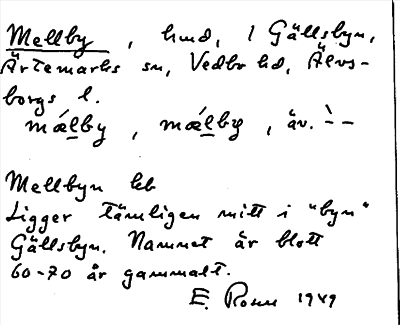 Mellby, hmd, i Gällsbyn,
Ärtemarks sn, Vedbo hd, Älvs-
borgs l.
mǽlby, mǽlby, äv. `--
Mellbyn lb
Ligger tämligen mitt i "byn"
Gällsbyn. Namnet är blott
60-70 år gammalt.
E. Rosell 1949